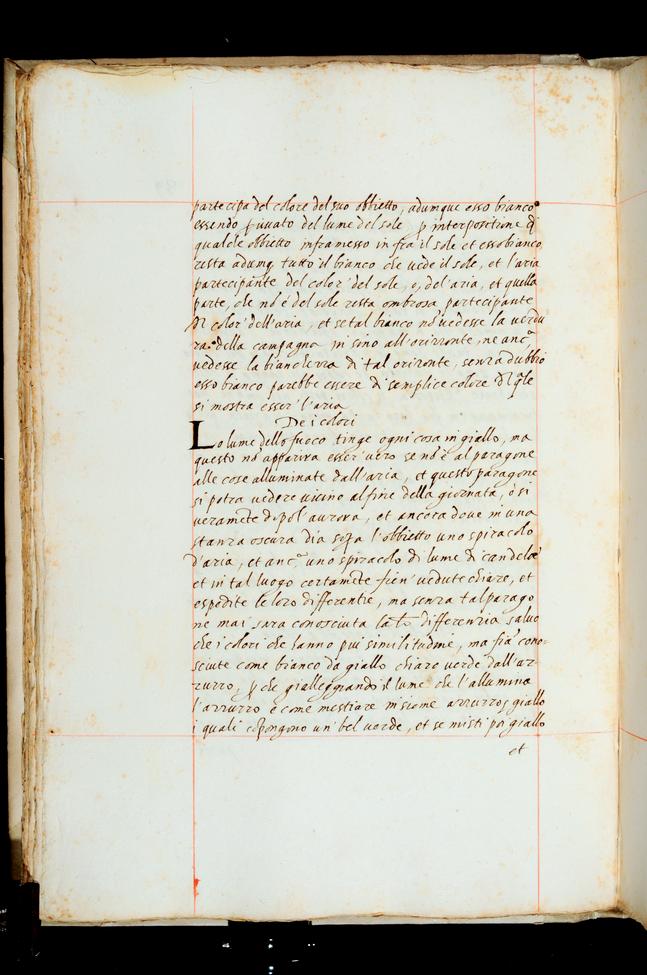 partecipa del colore del suo obbietto, adumque esso bianco
essendo p̱ uuato del lume del sole p̱ interpositione di
qualche obbietto inframesso infra il sole et esso bianco
resta adumq tutto il bianco che vede il sole, et l'aria
partecipante del color' del sole, e, del'aria, et quella
parte, che nō é del sole resta ombrosa partecipante
del color' dell'aria, et se tal bianco nō vedesse la uerdu
ra della campagna in sino all'orizzonte, ne anc.
uedesse la bianchezza di tal orizonte, senza dubbio
esso bianco parebbe essere di semplice colore del qle
si mostra esser' l'aria
De i colori
Lo lume dello fuoco tinge ogni cosa in giallo, ma
questo nō apparira esser' uero se nō é al paragone
alle cose alluminate dall'aria, et questo paragone
si potra uedere uicino al fine della giornata, ó si
ueramēte dopo l'aurora, et ancora doue in una
stanza oscura dia sopa l'obbietto uno spiracolo
d'aria, et anc. uno spiracolo di lume di candela
et in tal luogo certamēte fien' uedute chiare, et
espedite le loro differentie, ma senza tal parago
ne mai sara conosciuta la differenzia saluo
che i colori che hanno piú similitudine, ma fia cono-
sciute come bianco da giallo chiare uerde dall'az-
zurro, p̱ che gialleggiando il lume che l'allumina
l'azzurro é come mestiare insieme azzurro, giallo
i quali cōpongono un' bel uerde, et se misti poi giallo
et